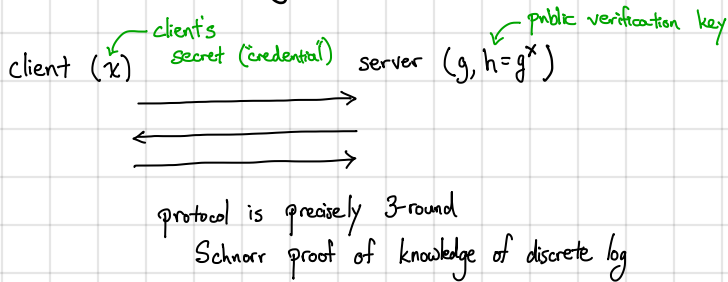 client's
secret ("credential")
public verification key
client (x)
server (g, h = g^x)
protocol is precisely 3-round
Schnorr proof of knowledge of discrete log